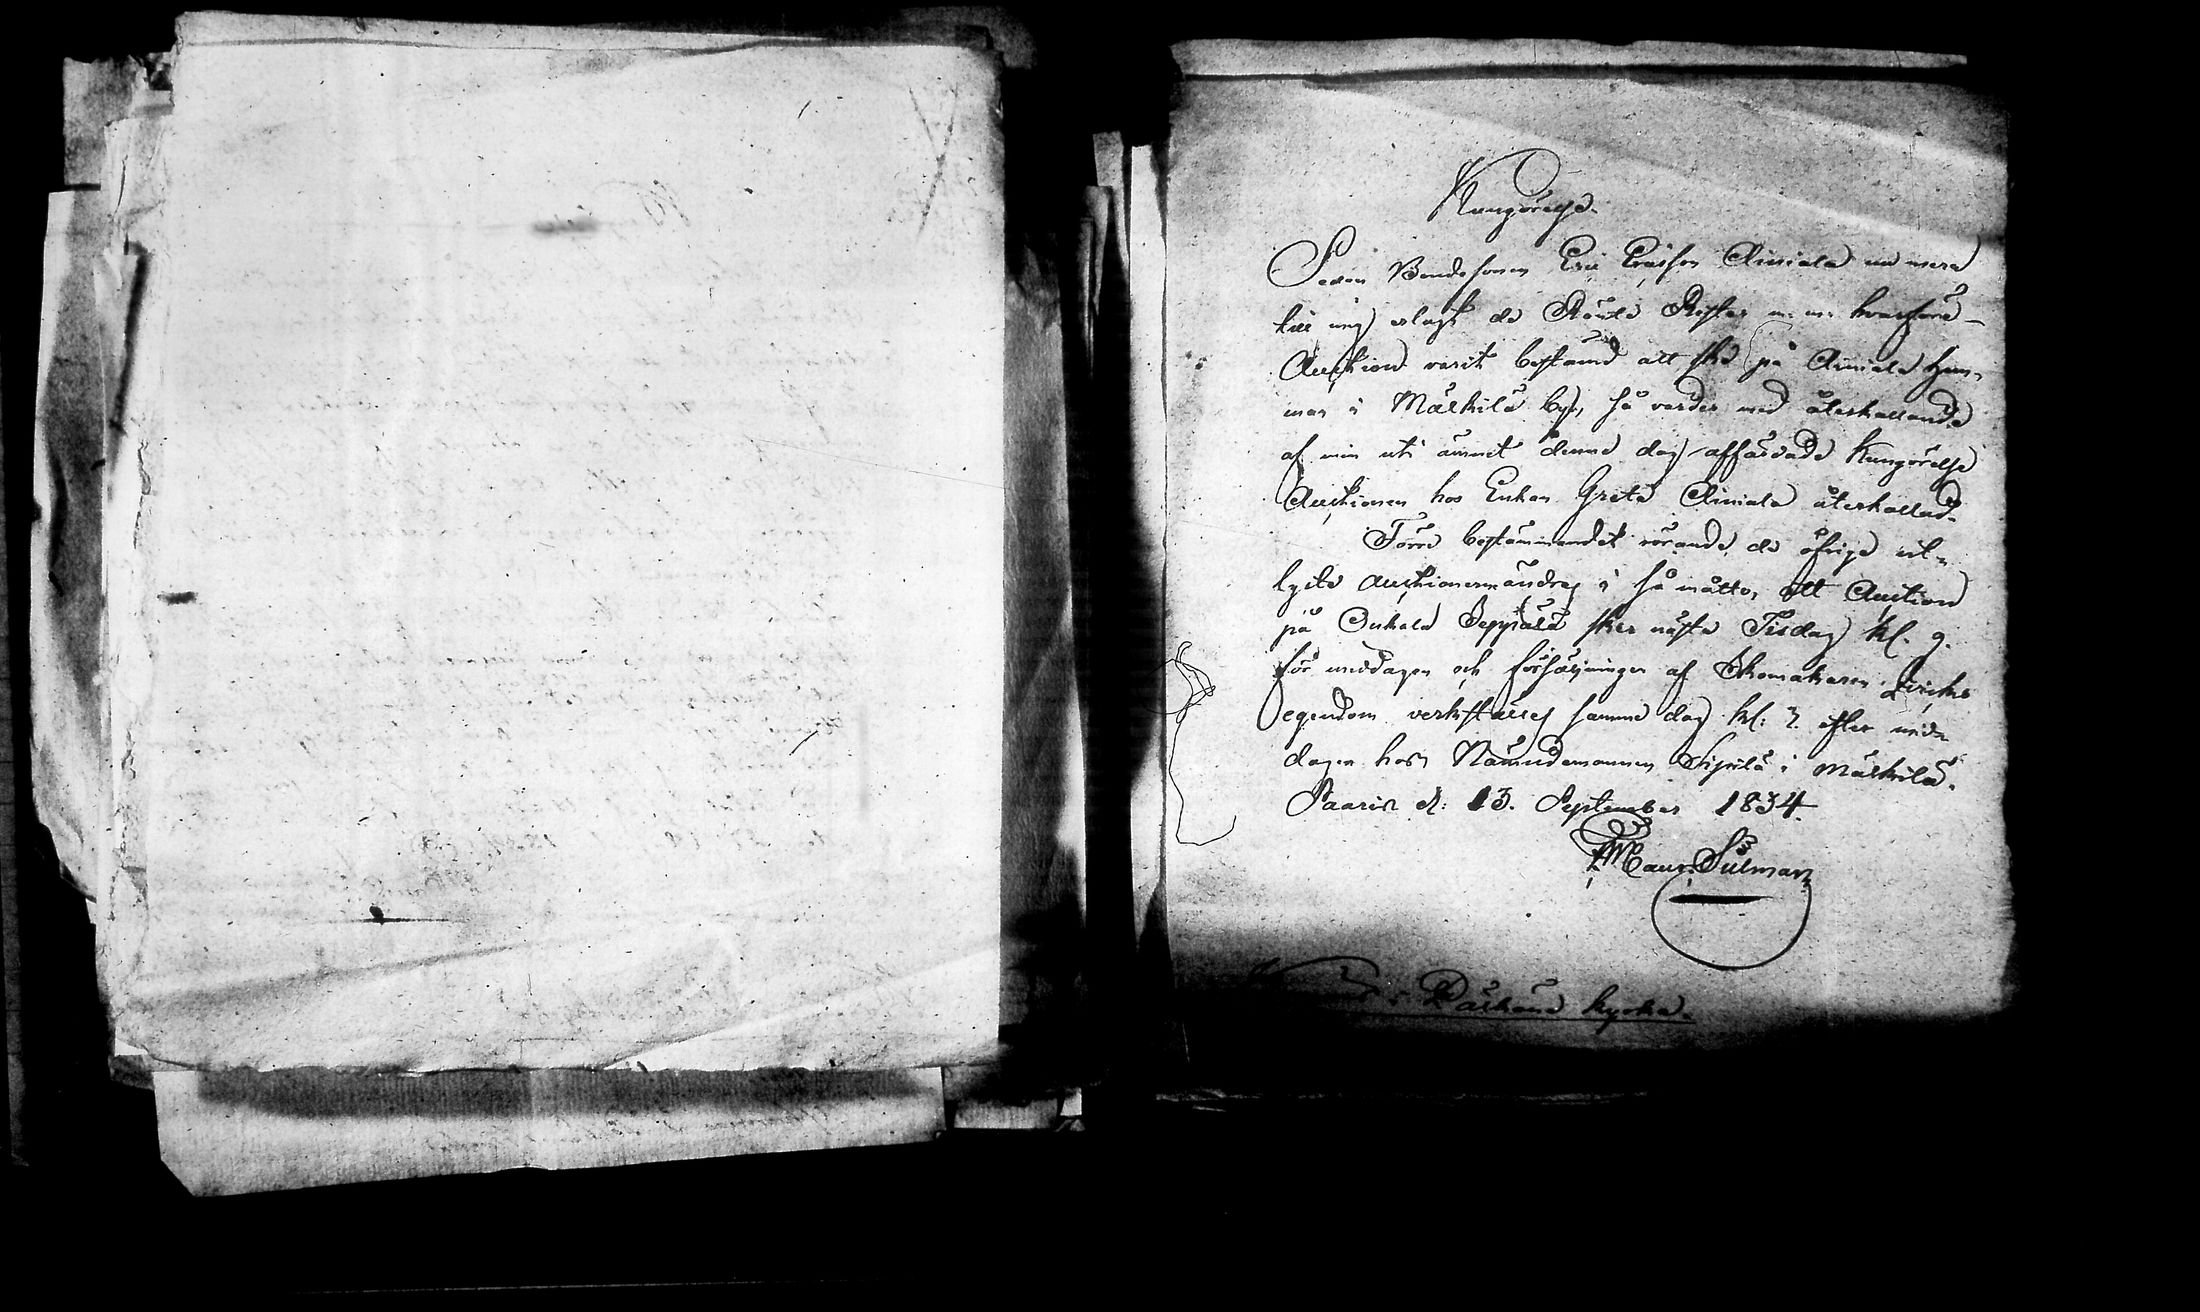 Kungörelse.
Sedan Bondesonen Eric Ericsson Ainiala nu mera
till mig erlagt de Räntle Persslar m. m. hvarföre
Auction varit bestämd att ske på Ainiala Hem-
man i Mälkilä by, så varder med återkallande
af min uti ämnet denne dag affärdade Kungörelse
Auctionen hos Enkan Greta Ainiala återkallad.
Förre bestämmandet rörande de öfriga ut-
lyste Auctioner ändras i så måtto, att Auction
på Onkala Seppälä sker nästa Tisdag kl. 9.
för middagen och försäljningen af Skomakaren
egendom verkställes samma dag kl. 3. efter mid-
dagen hos Nämndemannen Sipilä i Mälkilä.
Saaris d. 13. September 1834.
Maur. Silman
i kyrka.